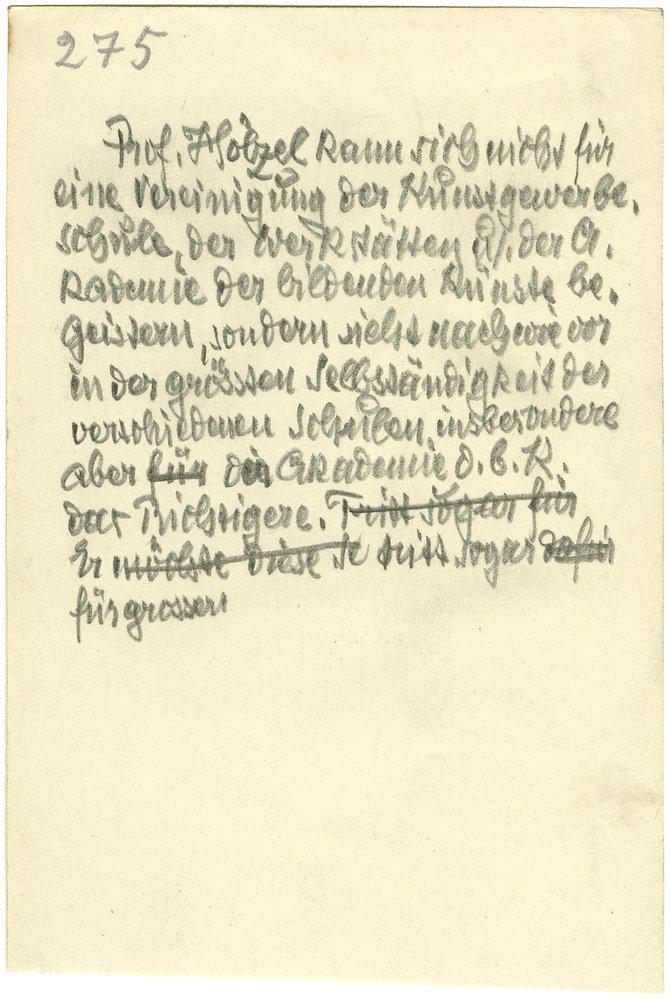 275
Prof. Hölzel kann sich nicht für
eine Vereinigung der Kunstgewerbe-
schule, der Werkstätten u. der A-
kademie der bildenden Künste be-
geistern, sondern sieht nach wie vor
in der grössten Selbständigkeit der
verschiedenen Schulen, insbesondere
aber für die Akademie d. b. K.
das Richtigere. Tritt sogar für
Er möchte diese se tritt sogar dafür
für grössere